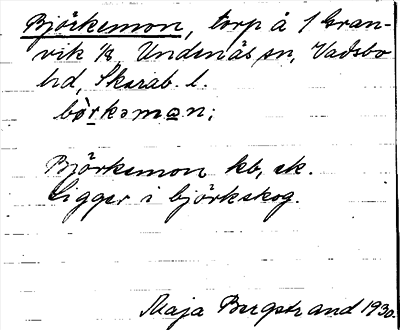 Björkemon, torp å 1 Gran-
vik 1/8, Undenäs sn, Vadsbo
hd, Skarab. l.
bòrkəmɷn;
Björkemon kb, ek.
Ligger i björkskog.
Maja Bergstrand 1930.